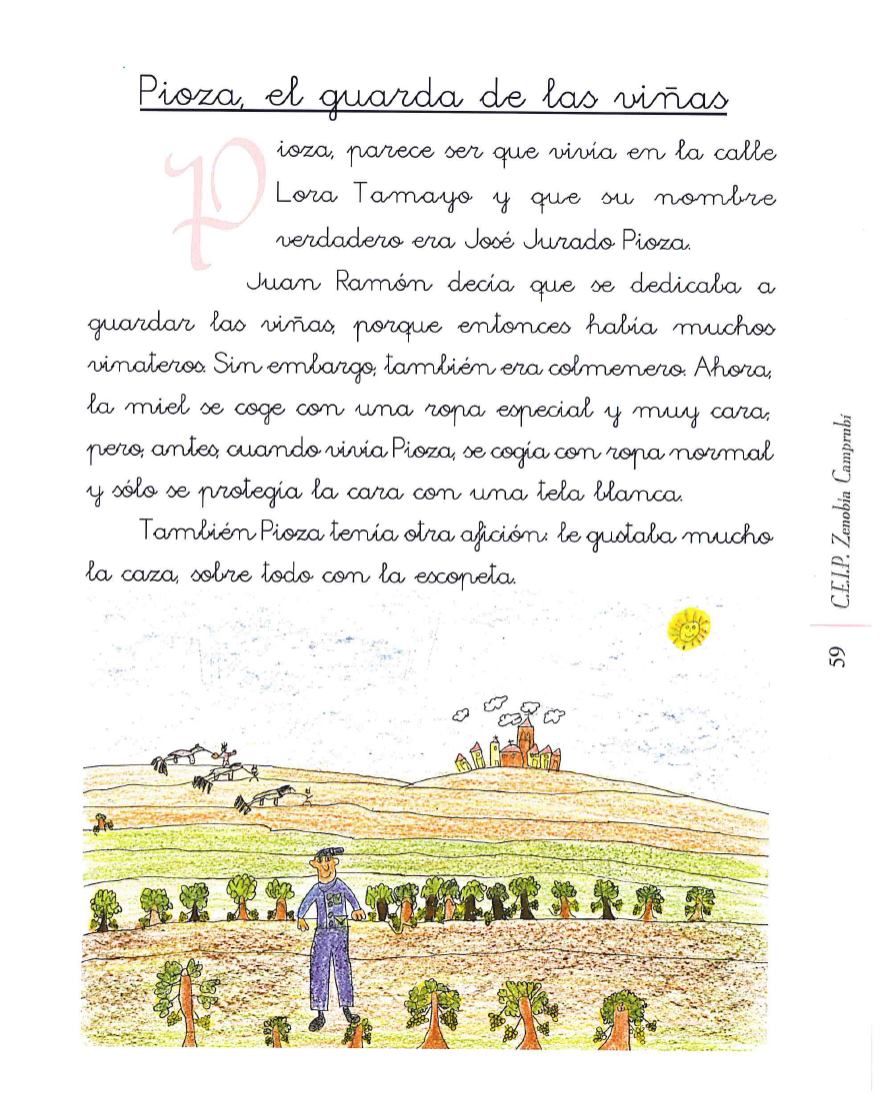 Pioza, el guarda de las viñas
Pioza, parece ser que vivía en la calle
Lora Tamayo y que su nombre
verdadero era José Jurado Pioza.
Juan Ramón decía que se dedicaba a
guardar las viñas, porque entonces había muchos
vinateros. Sin embargo, también era colmenero. Ahora,
la miel se coge con una ropa especial y muy cara;
pero, antes, cuando vivía Pioza, se cogía con ropa normal
y sólo se protegía la cara con una tela blanca.
También Pioza tenía otra afición: le gustaba mucho
la caza, sobre todo con la escopeta.
59 C.E.I.P. Zenobia Camprubí